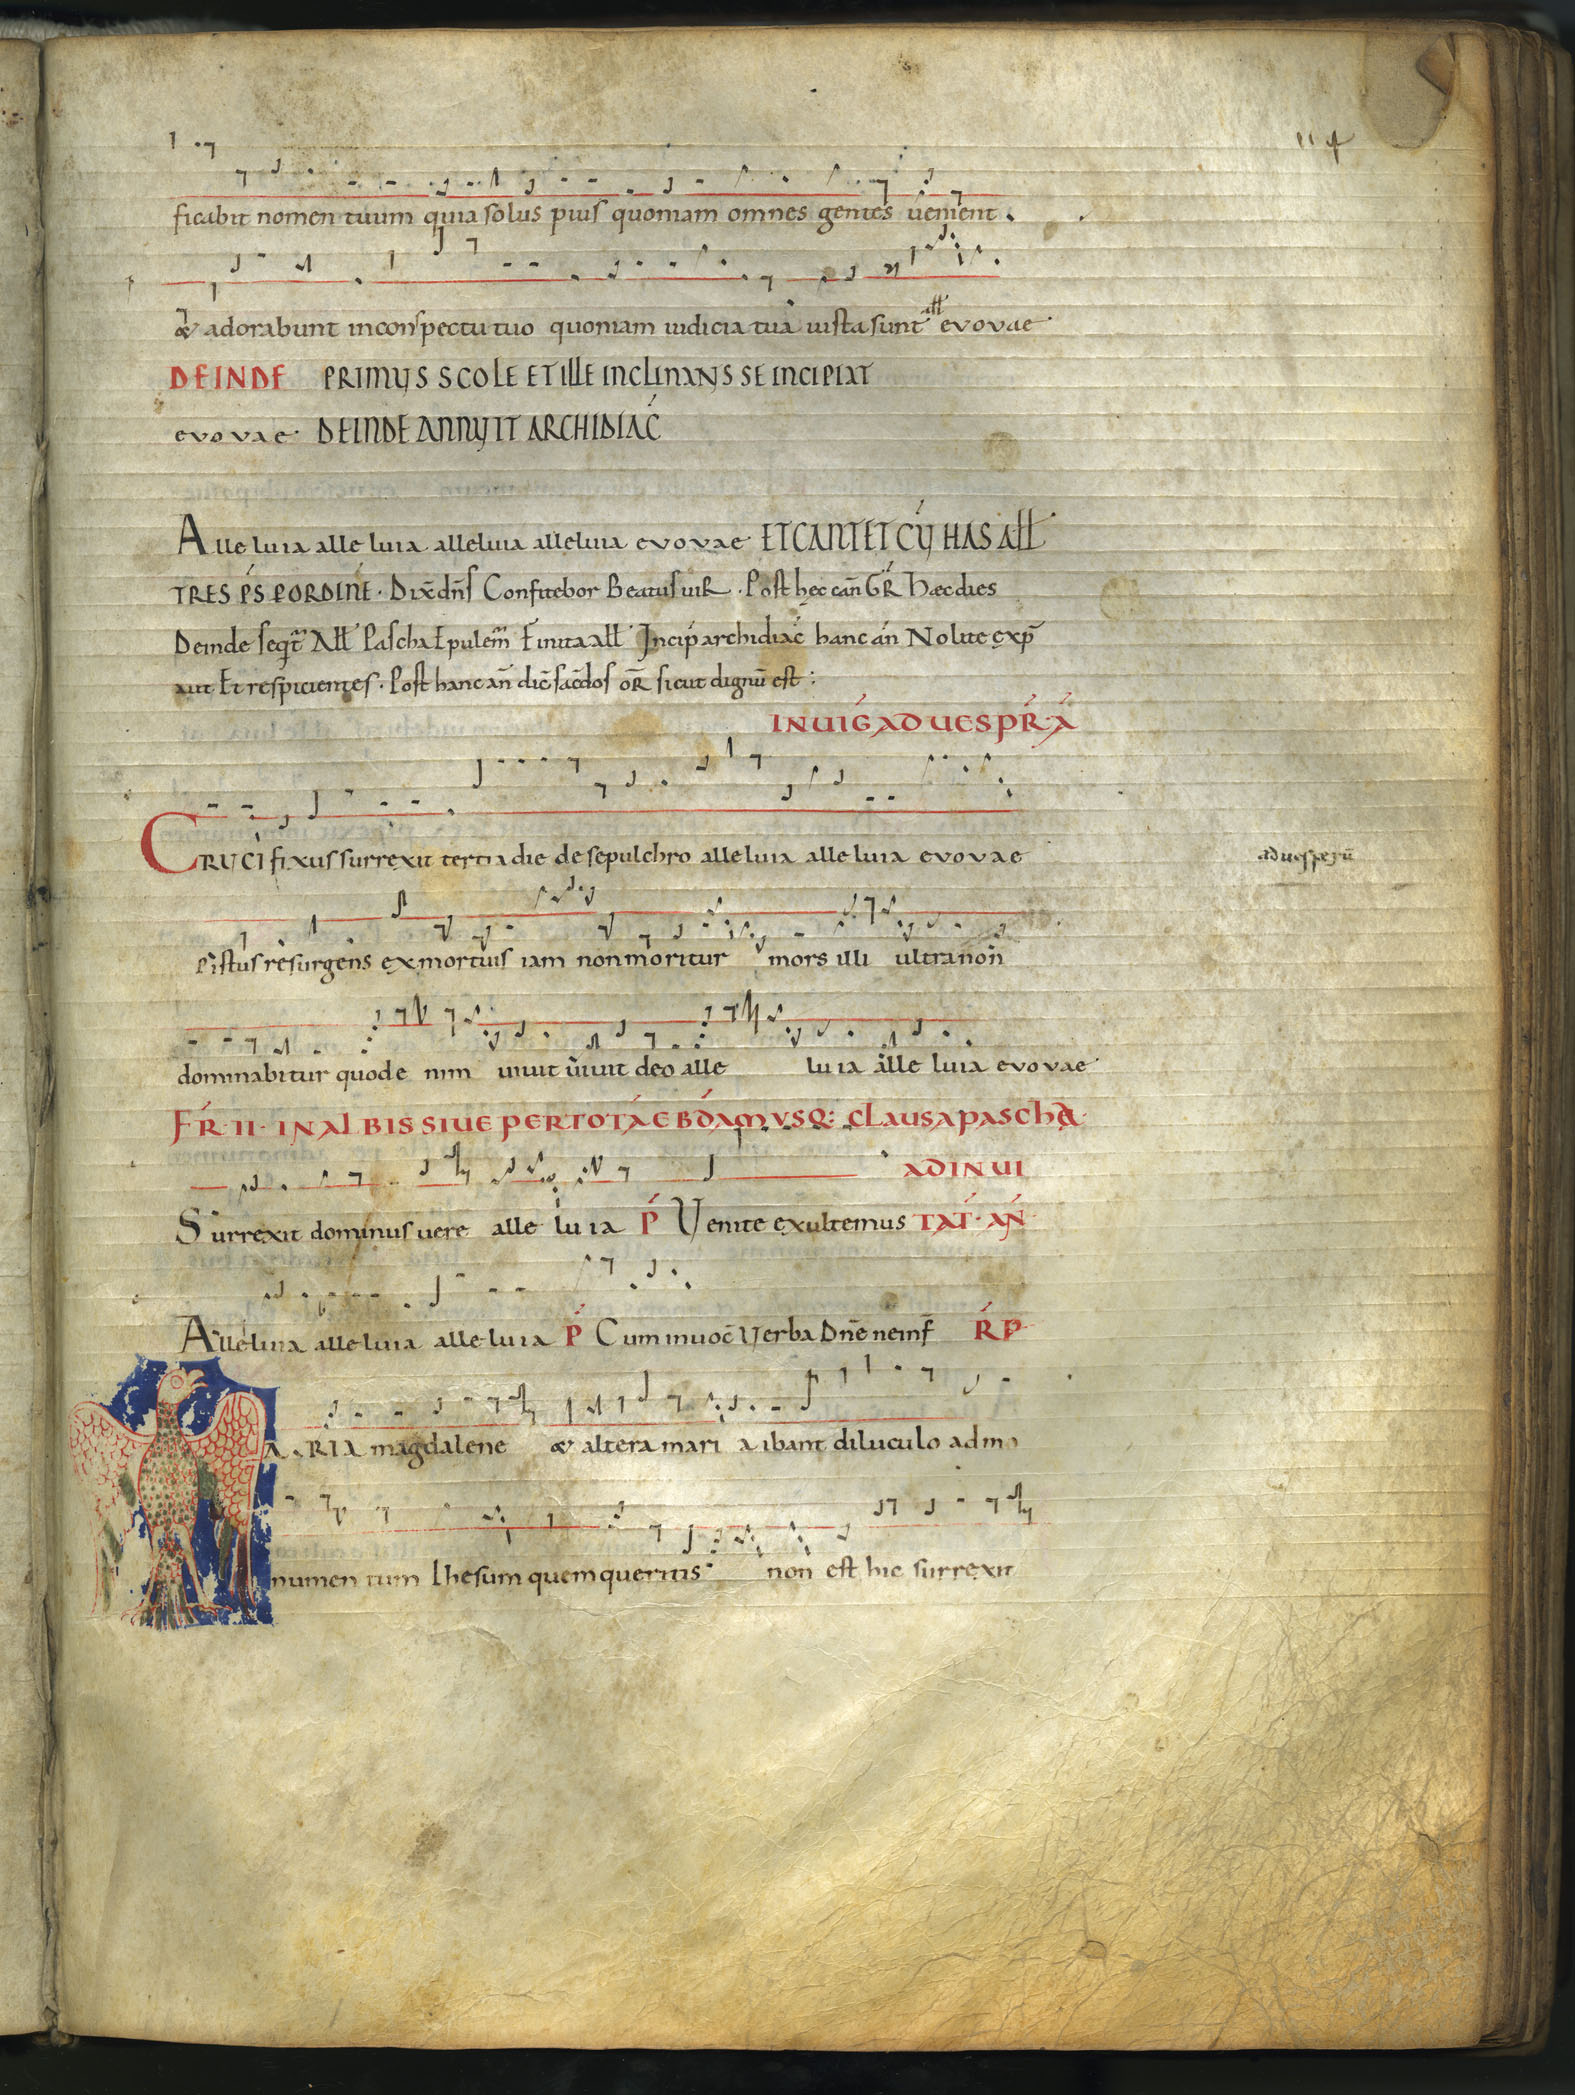 114
ficabit nomen tuum quia solus pius quoniam omnes gentes uenient.
& adorabunt inconspectu tuo quoniam iudicia tua iusta sunt all euouae
DEINDE PRIMUS SCOLE ET ILLE INCLINANS SE INCIPIAT
euouae DEINDE ANNUIT ARCHIDIAC̄
Alleluia alleluia alleluia alleluia euouae ET CANTET CŪ HAS All
TRES PS P ORDINE· Dix̄ dn̄s Confitebor Beatus uiR· Post hęc cañ GR̄ Hæc dies
Deinde seqt̄ All Pascha Epulem̄ Finita all Incip archidiac̄ hanc añ Nolite exp̄
aut Et respicientes· Post hanc añ dic̄ sac̄dos oR̄ sicut dignū est:
IN UIG AD UESPR·A
CRUCIfixus surrexit tertia die de sepulchro alleluia alleluia euouae
ad uesperū
Pistus resurgens exmortuis iam non moritur mors illi ultra non
dominabitur quod enim uiuit uiuit deo alle luia alle luia euouae
FR·II·IN ALBIS SIUE PER TOTA EBDAM VSQ: CLAUSA PASCHA
ADINUI
Surrexit dominus uere alle luia P Uenite exultemus TAT· AN
Alleluia alleluia alleluia P Cum inuoc̄ Uerba Dn̄e ne inf̄ R P
A RIA magdalene & altera mari a ibant diluculo ad mo
numentum Ihesum quem queritis non est hic surrexit